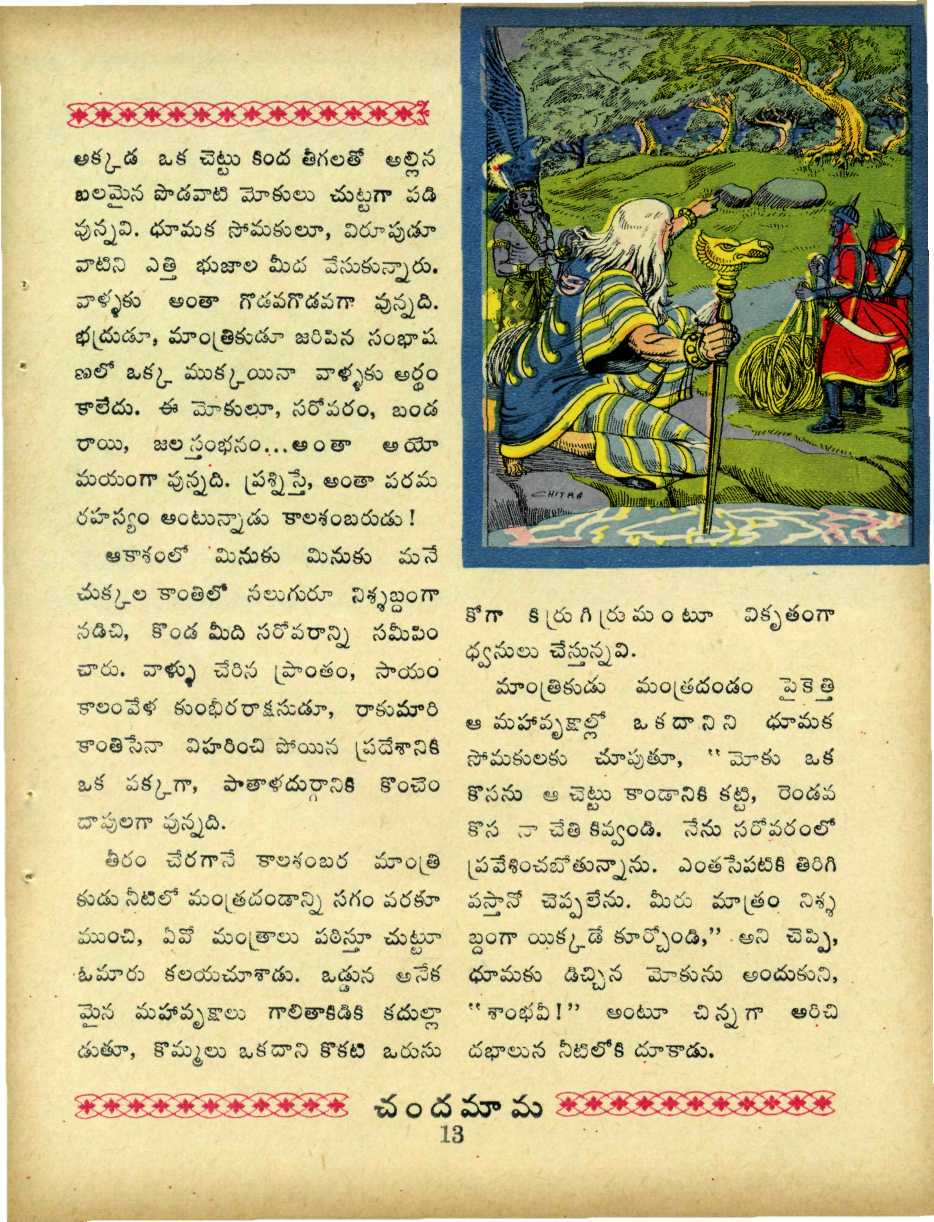 అక్కడ ఒక చెట్టు కింద తీగలతో అల్లిన
బలమైన పొడవాటి మోకులు చుట్టగా పడి
వున్నవి. ధూమక సోమకులూ, విరూపుడూ
వాటిని ఎత్తి భుజాల మీద వేసుకున్నారు.
వాళ్ళకు అంతా గొడవగొడవగా వున్నది.
భద్రుడూ, మాంత్రికుడూ జరిపిన సంభాష
ణలో ఒక్క ముక్కయినా వాళ్ళకు అర్థం
కాలేదు. ఈ మోకులూ, సరోవరం, బండ
రాయి, జల స్తంభనం...అంతా అయో
మయంగా వున్నది. ప్రశ్నిస్తే, అంతా పరమ
రహస్యం అంటున్నాడు కాలశంబరుడు!
ఆకాశంలో మినుకు మినుకు మనే
చుక్కల కాంతిలో నలుగురూ నిశ్శబ్దంగా
నడిచి, కొండ మీది సరోవరాన్ని సమీపిం
చారు. వాళ్ళు చేరిన ప్రాంతం, సాయం
కాలంవేళ కుంభీరరాక్షసుడూ, రాకుమారి
కాంతిసేనా విహరించి పోయిన ప్రదేశానికి
ఒక పక్కగా, పాతాళదుర్గానికి కొంచెం
దాపులగా వున్నది.
తీరం చేరగానే కాలశంబర మాంత్రి
కుడు నీటిలో మంత్రదండాన్ని సగం వరకూ
ముంచి, ఏవో మంత్రాలు పఠిస్తూ చుట్టూ
ఓమారు కలయచూశాడు. ఒడ్డున అనేక
మైన మహావృక్షాలు గాలితాకిడికి కదుల్లా
డుతూ, కొమ్మలు ఒకదాని కొకటి ఒరుసు
CHITRA
కోగా కిర్రు గిర్రు మంటూ వికృతంగా
ధ్వనులు చేస్తున్నవి.
మాంత్రికుడు మంత్రదండం పైకెత్తి
ఆ మహావృక్షాల్లో ఒకదానిని ధూమక
సోమకులకు చూపుతూ, "మోకు ఒక
కొసను ఆ చెట్టు కాండానికి కట్టి, రెండవ
కొస నా చేతి కివ్వండి. నేను సరోవరంలో
ప్రవేశించబోతున్నాను. ఎంతసేపటికి తిరిగి
వస్తానో చెప్పలేను. మీరు మాత్రం నిశ్శ
బ్దంగా యిక్కడే కూర్చోండి," అని చెప్పి,
ధూమకు డిచ్చిన మోకును అందుకుని,
"శాంభవీ!" అంటూ చిన్నగా అరిచి
దభాలున నీటిలోకి దూకాడు.
చందమామ
13